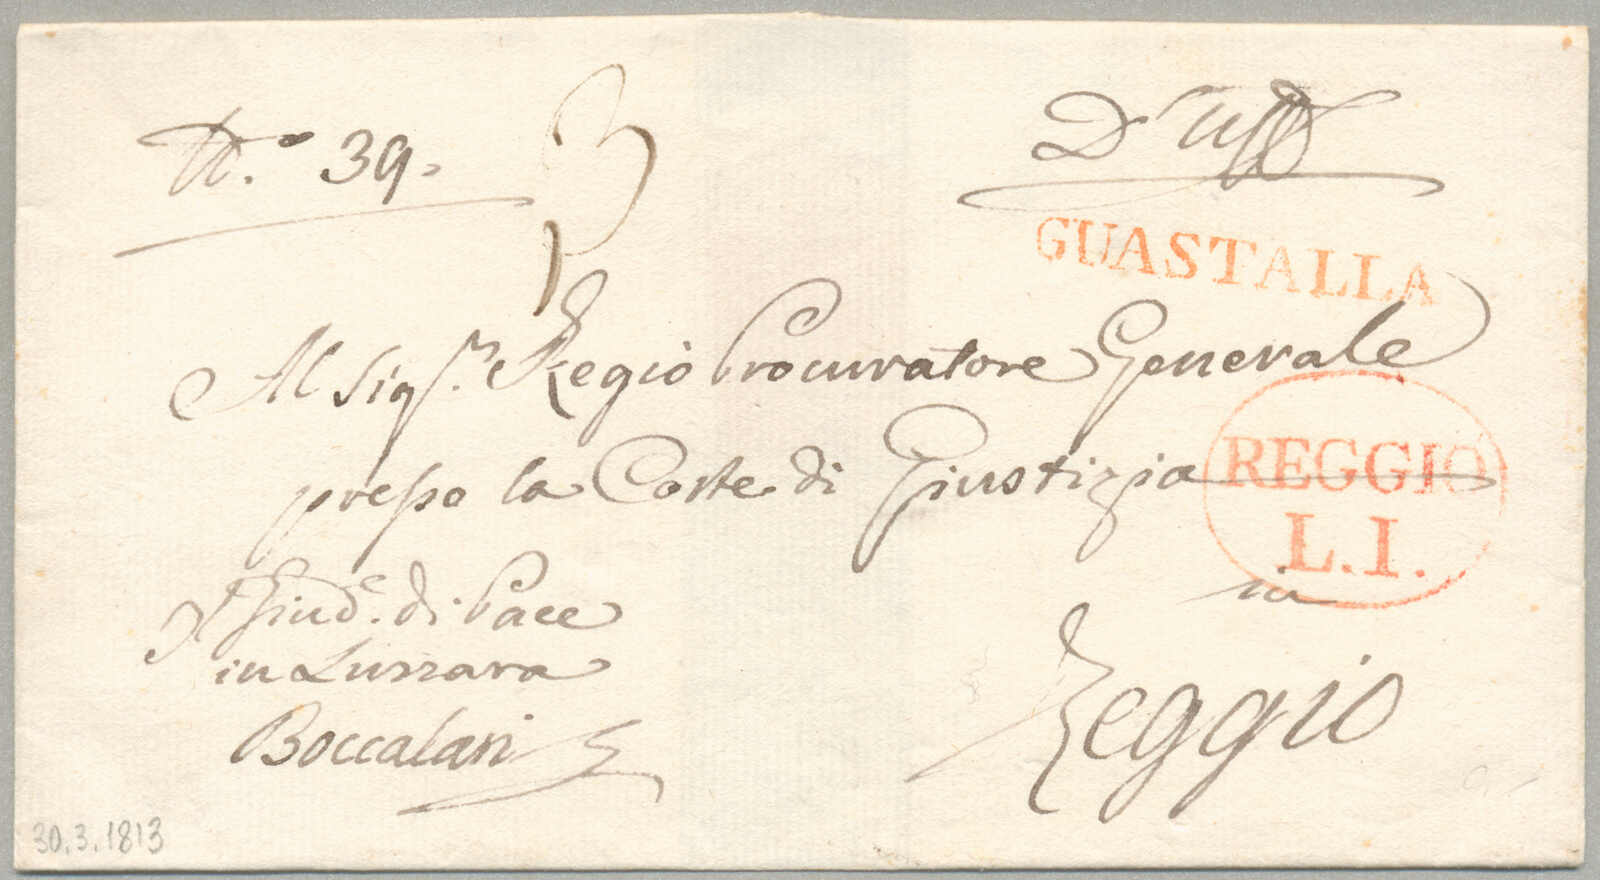 N.º 39.
3
D'Uff
GUASTALLA
Al Sigʳ. Regio Procuratore Generale
presso la Corte di Giustizia
REGGIO
L.I.
in
Reggio
Giudᵉ. di Pace
in Luzzara
Boccalari
30.3.1813